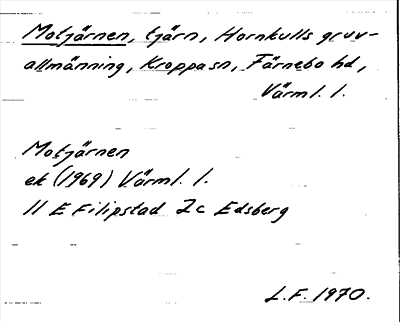 Motjärnen, tjärn, Hornkulls gruv-
allmänning, Kroppa sn, Färnebo hd,
Värml. l.
Motjärnen
ek (1969) Värml. l.
11 E Filipstad 2c Edsberg
L.F. 1970.